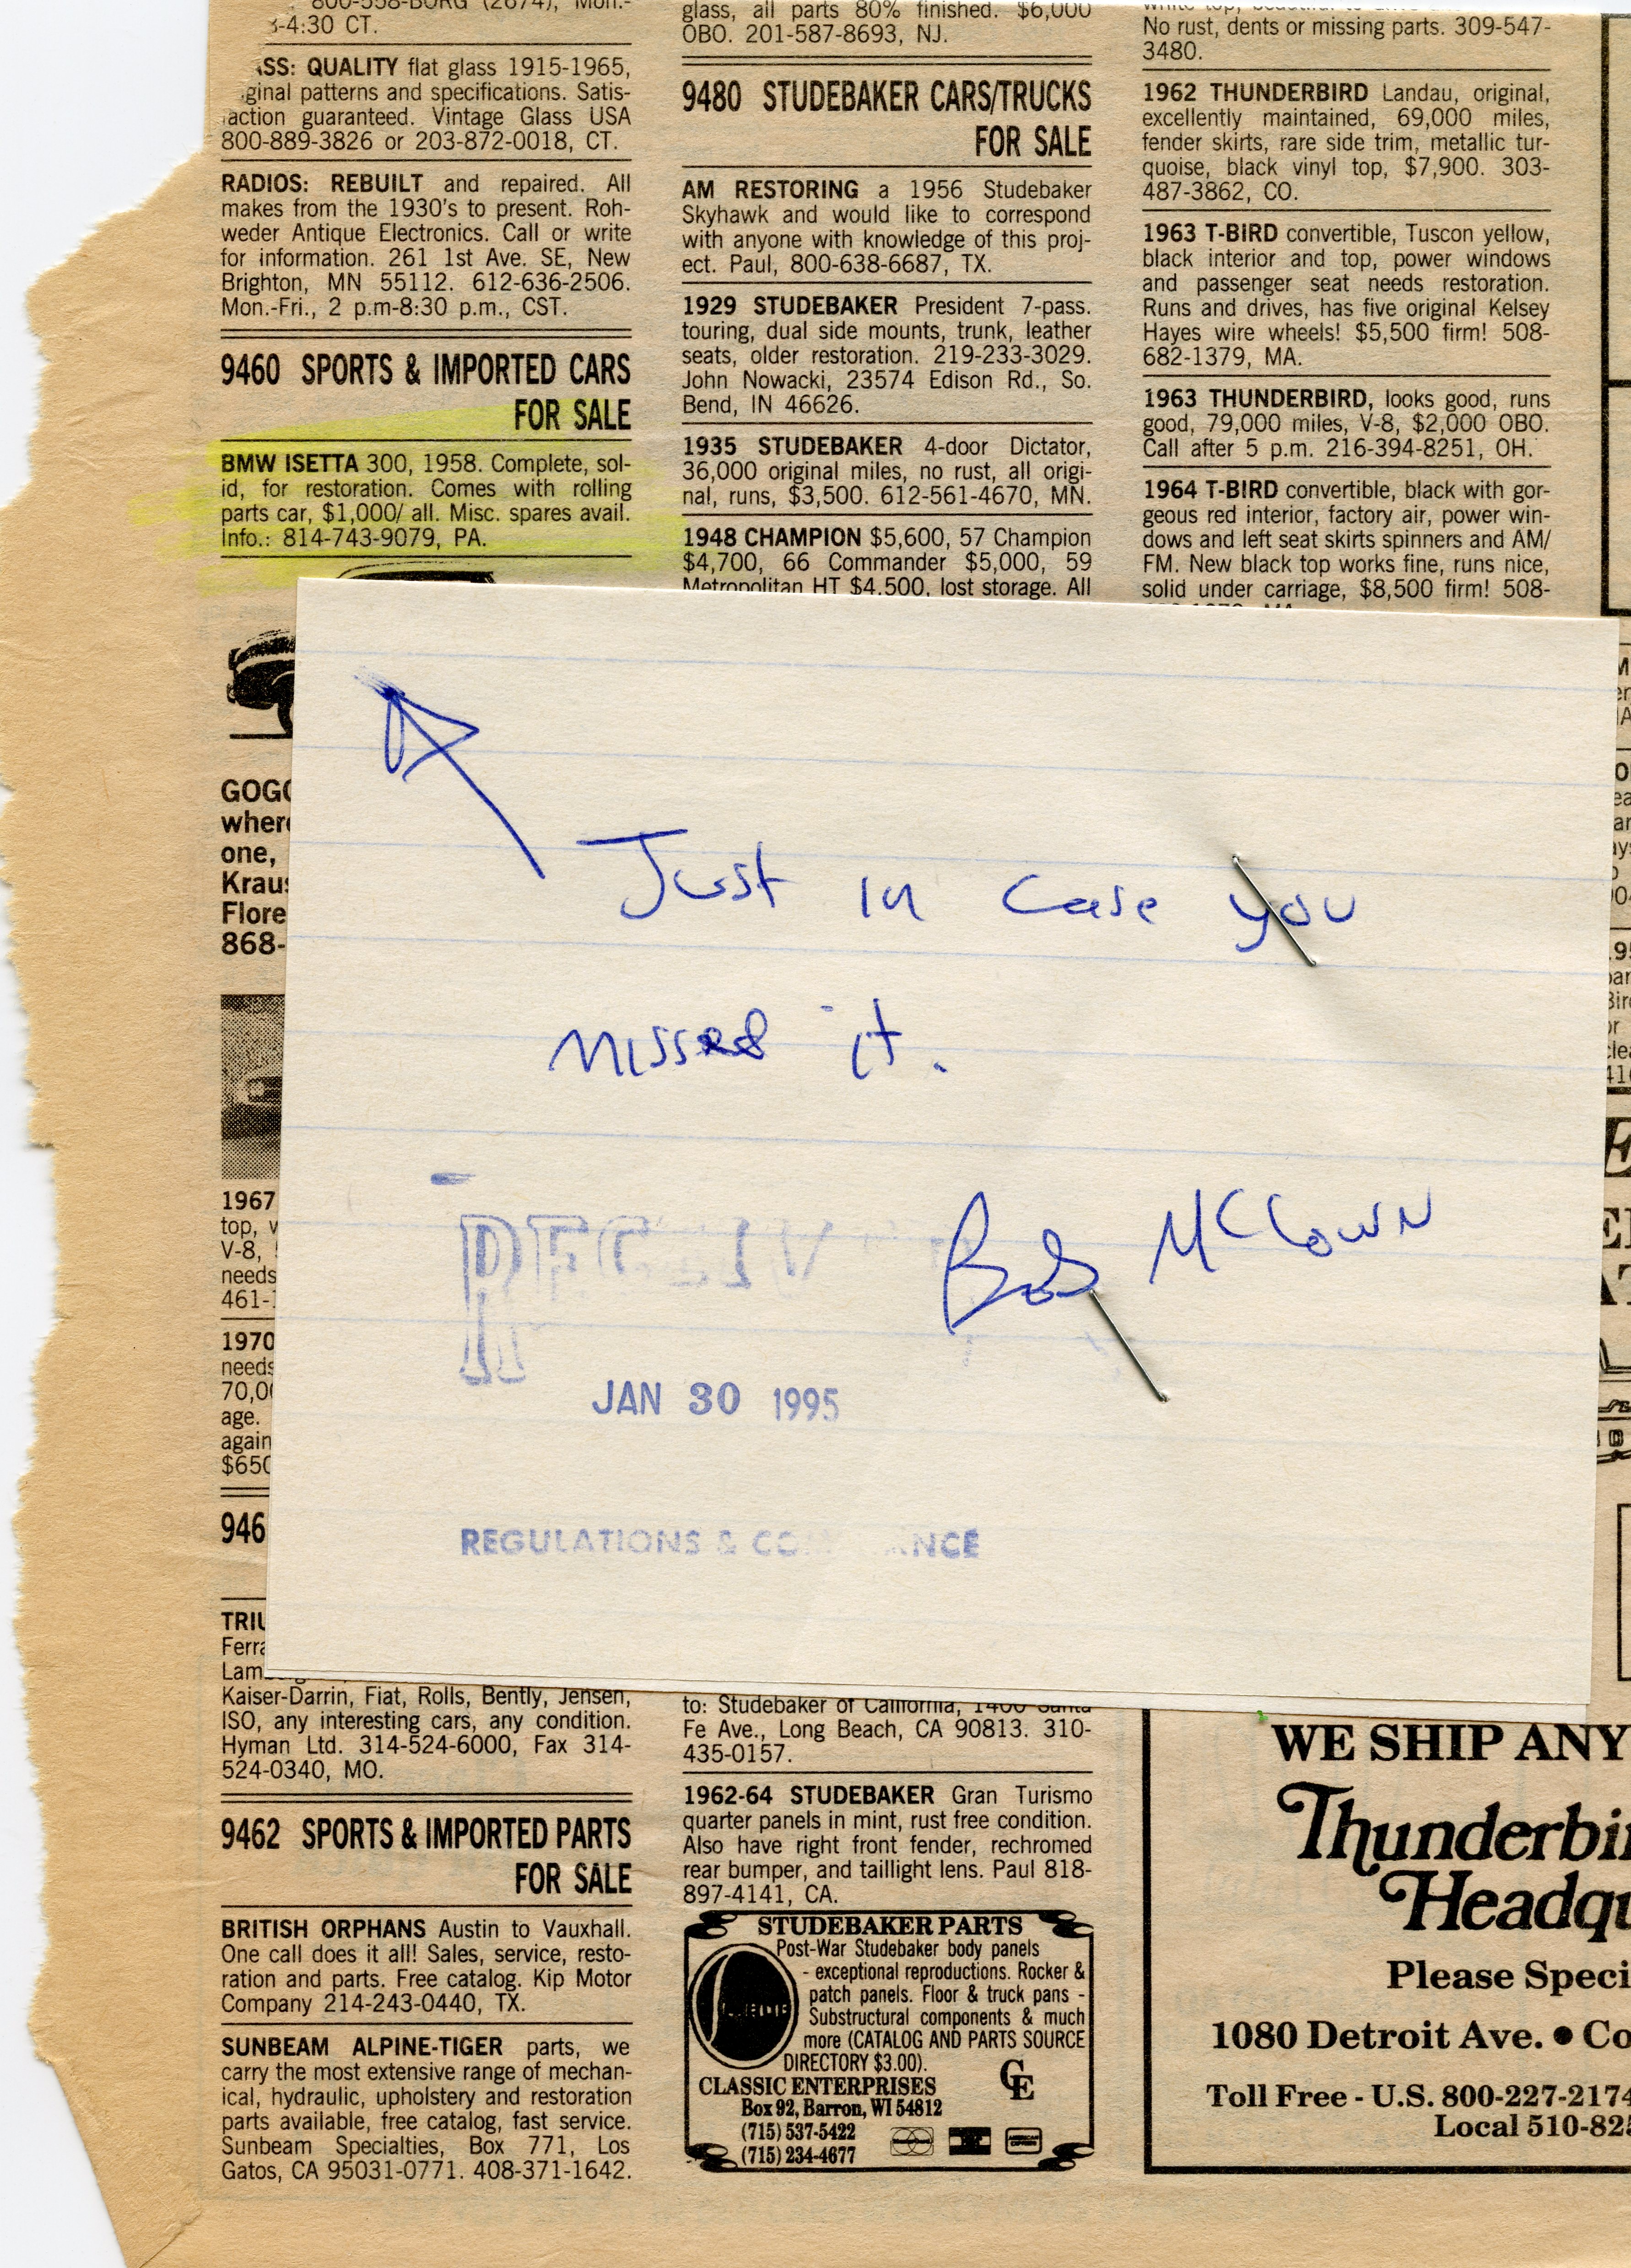 800-558-BORG (2674), Mon.-
3-4:30 CT.
QUALITY flat glass 1915-1965,
patterns and specifications. Satis-
guaranteed. Vintage Glass USA
800-889-3826 or 203-872-0018, CT.
RADIOS: REBUILT and repaired. All
makes from the 1930's to present. Roh-
weder Antique Electronics. Call or write
for information. 261 1st Ave. SE, New
Brighton, MN 55112. 612-636-2506.
Mon.-Fri., 2 p.m-8:30 p.m., CST.
9460 SPORTS & IMPORTED CARS
FOR SALE
BMW ISETTA 300, 1958. Complete, sol-
id, for restoration. Comes with rolling
parts car, $1,000/ all. Misc. spares avail.
Info.: 814-743-9079, PA.
GOGO
where
one,
Kraus
Flore
868-
1967
top, v
V-8,
needs
461-
1970
needs
70,00
age.
again
$650
946
TRIU
Ferra
Lam
Kaiser-Darrin, Fiat, Rolls, Bently, Jensen,
ISO, any interesting cars, any condition.
Hyman Ltd. 314-524-6000, Fax 314-
524-0340, MO.
9462 SPORTS & IMPORTED PARTS
FOR SALE
BRITISH ORPHANS Austin to Vauxhall.
One call does it all! Sales, service, resto-
ration and parts. Free catalog. Kip Motor
Company 214-243-0440, TX.
SUNBEAM ALPINE-TIGER parts, we
carry the most extensive range of mechan-
ical, hydraulic, upholstery and restoration
parts available, free catalog, fast service.
Sunbeam Specialties, Box 771, Los
Gatos, CA 95031-0771. 408-371-1642.
glass, all parts 80% finished. $6,000
OBO. 201-587-8693, NJ.
9480 STUDEBAKER CARS/TRUCKS
FOR SALE
AM RESTORING a 1956 Studebaker
Skyhawk and would like to correspond
with anyone with knowledge of this proj-
ect. Paul, 800-638-6687, TX.
1929 STUDEBAKER President 7-pass.
touring, dual side mounts, trunk, leather
seats, older restoration. 219-233-3029.
John Nowacki, 23574 Edison Rd., So.
Bend, IN 46626.
1935 STUDEBAKER 4-door Dictator,
36,000 original miles, no rust, all origi-
nal, runs, $3,500. 612-561-4670, MN.
1948 CHAMPION $5,600, 57 Champion
$4,700, 66 Commander $5,000, 59
Metropolitan HT $4,500, lost storage. All
Just in case you
missed it.
Bob McCown
RECEIV
JAN 30 1995
REGULATIONS & CO NCE
to: Studebaker of California, 1400 Santa
Fe Ave., Long Beach, CA 90813. 310-
435-0157.
1962-64 STUDEBAKER Gran Turismo
quarter panels in mint, rust free condition.
Also have right front fender, rechromed
rear bumper, and taillight lens. Paul 818-
897-4141, CA.
STUDEBAKER PARTS
Post-War Studebaker body panels
- exceptional reproductions. Rocker &
patch panels. Floor & truck pans -
Substructural components & much
more (CATALOG AND PARTS SOURCE
DIRECTORY $3.00).
CLASSIC ENTERPRISES
CE
Box 92, Barron, WI 54812
(715) 537-5422
(715) 234-4677
No rust, dents or missing parts. 309-547-
3480.
1962 THUNDERBIRD Landau, original,
excellently maintained, 69,000 miles,
fender skirts, rare side trim, metallic tur-
quoise, black vinyl top, $7,900. 303-
487-3862, CO.
1963 T-BIRD convertible, Tuscon yellow,
black interior and top, power windows
and passenger seat needs restoration.
Runs and drives, has five original Kelsey
Hayes wire wheels! $5,500 firm! 508-
682-1379, MA.
1963 THUNDERBIRD, looks good, runs
good, 79,000 miles, V-8, $2,000 OBO.
Call after 5 p.m. 216-394-8251, OH.
1964 T-BIRD convertible, black with gor-
geous red interior, factory air, power win-
dows and left seat skirts spinners and AM/
FM. New black top works fine, runs nice,
solid under carriage, $8,500 firm! 508-
WE SHIP ANY
Thunderbir
Headqu
Please Speci
1080 Detroit Ave. • Co
Toll Free - U.S. 800-227-2174
Local 510-825